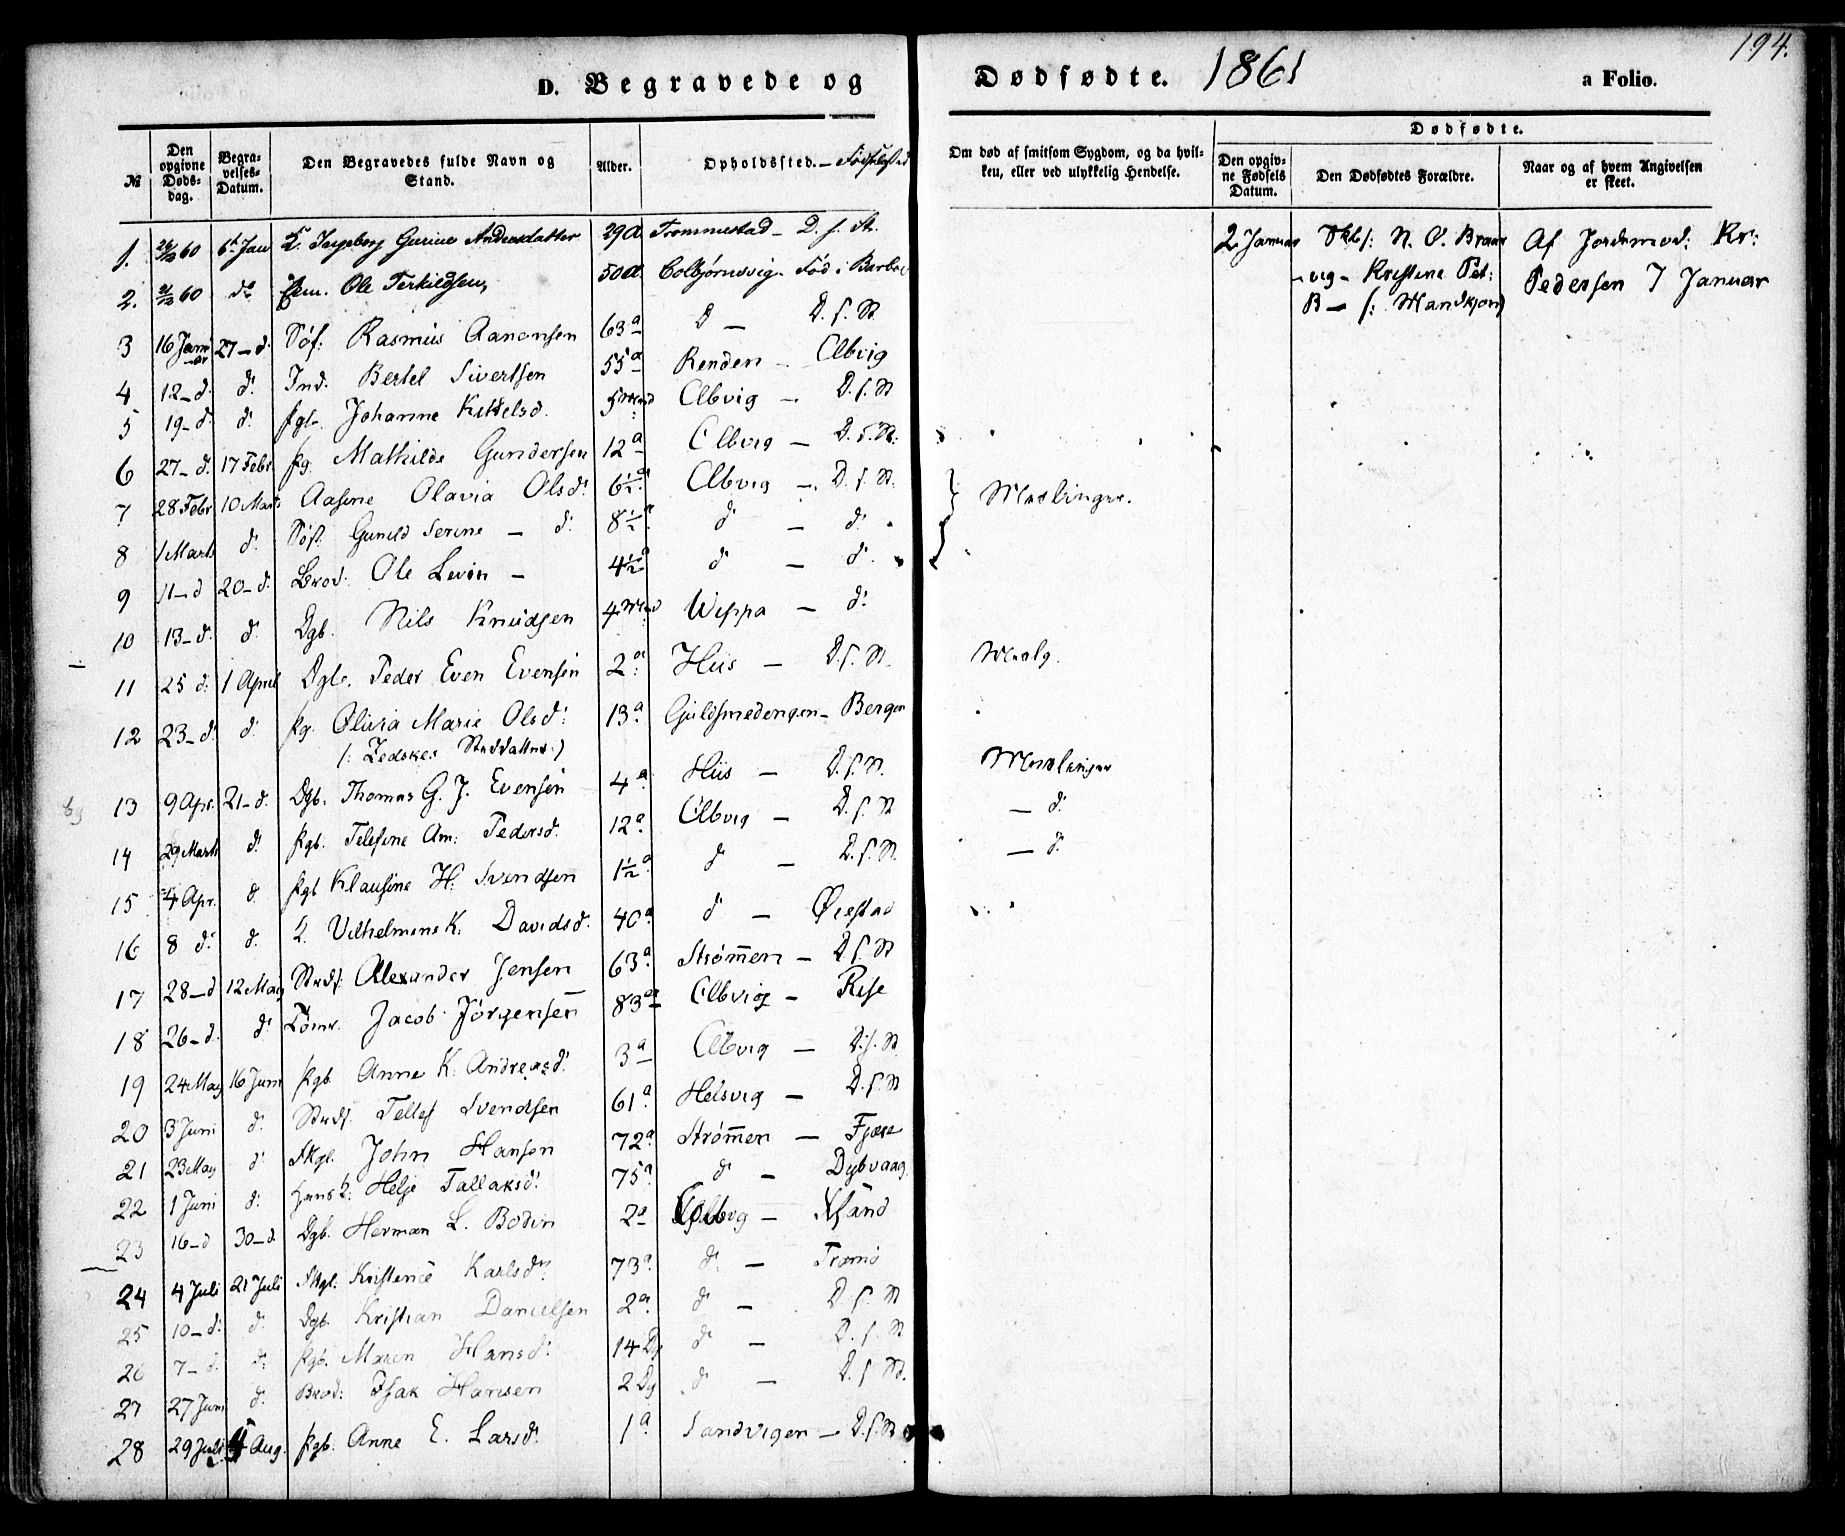 194.
D. Begravede og Dødfødte. 1861 a Folio.
№ Den opgivne Døds-dag. Begra-velses-Datum. Den Begravedes fulde Navn og Stand. Alder. Opholdssted. – Fødested Om død af smitsom Sygdom, og da hvil-ken, eller ved ulykkelig Hendelse. Dødfødte. Den opgiv-ne Fødsels Datum. Den Dødfødtes Forældre. Naar og af hvem Angivelsen er skeet.
1. 26/12 60 6t Jan Ingeborg Gurine Andreasdatter 29 a Trommestad – D. f. St. 2 Januar N. O. Braar Af Jordemod: Kr:
2. 60 do Ole Terkildsen 50 a Colbjørnsvig – Fød i Barbo -vig – Kristine Pet: Pedersen 7 Januar
3 16 Janu-ar 27 – d. Rasmus Aanonsen 63 a d – D. f. St.
4 12 – d. d. Ind. Bertel Sivertsen 55 a Renden – Albvig
5 19 – d. d. Johanne Kittelsd. 5 Albvig – D. f. St
6 27 – d. 17 Febr pg. Mathilde Gundersen 12 a Albvig – D. f. St.
7 28 Febr 10 Marts Aasine Olavia Olsd: 6½ a Albvig – D. f. St. Mæslinger.
8 1 Marts d. Søst. Gunild Serine – d. 8½ a d – d.
9 11 – d 20 – d. Brod. Ole Levin – 4½ a d – d.
10 13 – d. d. Dgb. Nils Knudsen 4 Wippa – d.
11 25 d. 1 April Dgb. Peder Even Evensen 2 a Hiis – D. f. St. Mæslg.
12 23 – d. d. pg. Olivia Marie Olsd: 13 a Guldsmedengen – Bergen
13 9 Apr. 21 – d. Dgb. Thomas G. J. Evensen 4 a Hiis – D. f. St. Mæslinger
14 29 Marts d. pgb. Telesine Am: Pedersd. 12 a Albvig – D. f. St – d.
15 4 Apr. d. pgb Klausine H. Svendsen 1½ a d – D. f. St. – d.
16 8 d. d. Vilhelmine K. Davidsd. 40 a d – Øiestad
17 28 – d 12 May Alexander Jensen 63 a Strømmen – D f St
18 26 – d. d. Tømr. Jacob Jörgensen 83 a Albvig – Rise
19 24 May 16 Juni pgb. Anne K. Andreasd. 3 a Albvig – D. f. St
20 3 Juni d. Tellef Svendsen 61 a Helsvig – D. f. St
21 23 May d. John Hansen 72 a Strømmen – Fjære
22 1 Juni d. Hans Helje Tallaksd. 75 a d – Dybvaag
23 16 – d 30 – d. Dgb. Herman L. Bodin 2 a Colbvg –
24 4 Juli 21 Juli Kristence Karlsdr 73 a d. – Tromø
25 10 – d. d. Dgb. Kristian Danielsen 2 a d – D. f. St
26 7 – d. d. pgb. Maren Hansd. 14 Dg d – D. f. St
27 27 Juni d. Brod: Isak Hansen 2 Dg d – D. f. St.
28 29 Juli Aug. pgb. Anne E. Larsd. 1 a Sandvigen – D. f. St